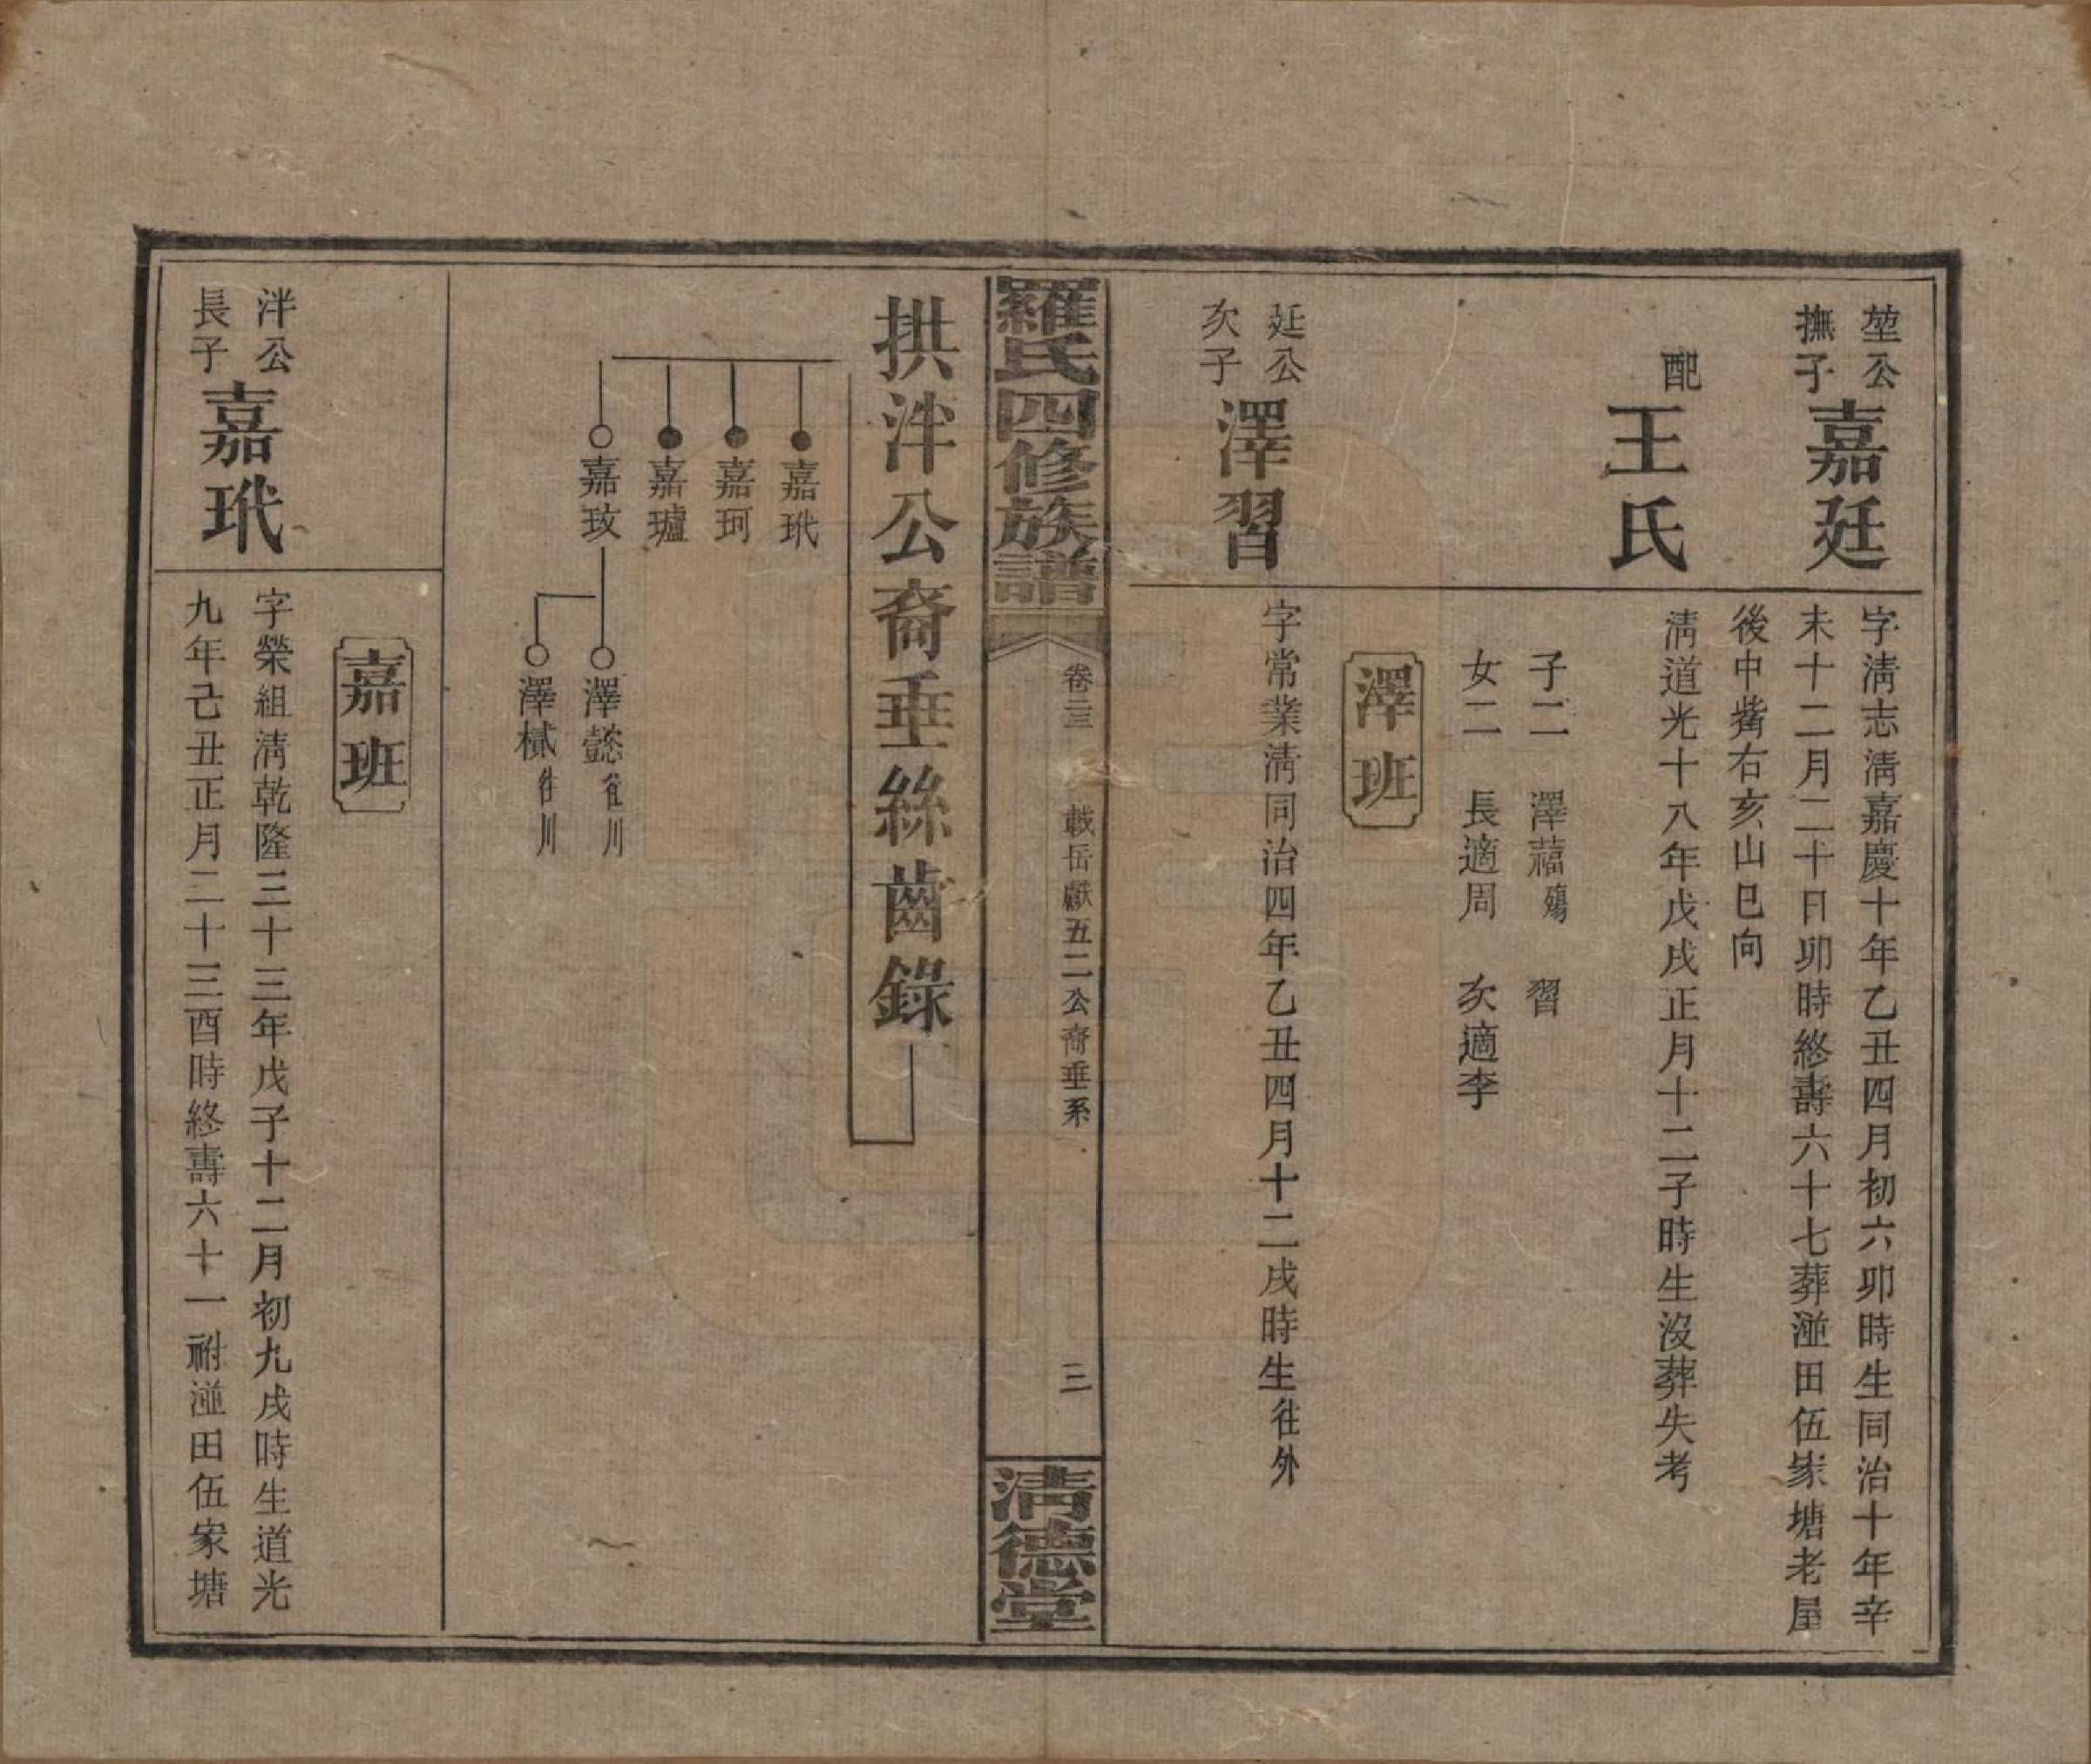 堃公
撫子
嘉廷
字淸志淸嘉慶十年乙丑四月初六卯時生同治十年辛
未十二月二十日卯時終壽六十七葬湴田伍家塘老屋
後中嘴右亥山巳向
配
王氏
淸道光十八年戊戌正月十二子時生沒葬失考
子二 澤藴殤 習
女二 長適周 次適李
澤班
延公
次子
澤習
字常業淸同治四年乙丑四月十二戌時生往外
羅氏四修族譜
卷二三
載岳獻五二公裔垂系
三
淸德堂
拱泮公裔垂絲齒錄
嘉玳
嘉珂
嘉瓐
嘉玫
澤懿往川
澤樲往川
嘉班
泮公
長子
嘉玳
字榮組淸乾隆三十三年戊子十二月初九戌時生道光
九年己丑正月二十三酉時終壽六十一祔湴田伍家塘